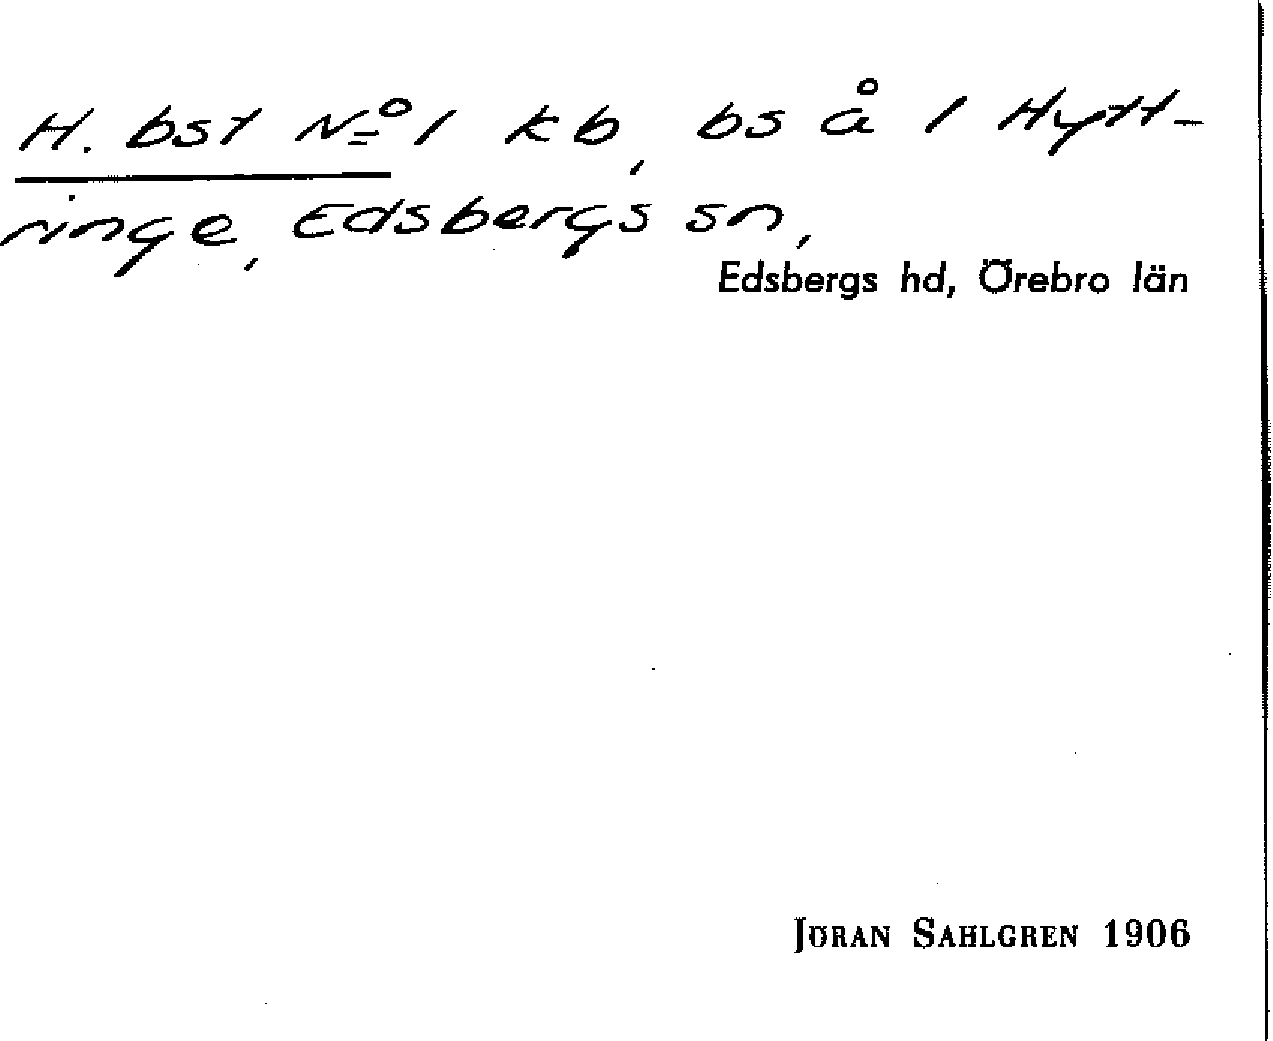 H. bst No 1 kb, bs å 1 Hytt-
ringe, Edsbergs sn,
Edsbergs hd, Örebro län
JÖRAN SAHLGREN 1906